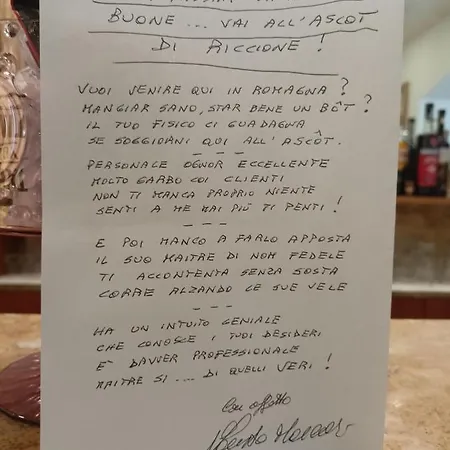 BUONE ... VAI ALL'ASCOT
DI RICCIONE !
VUOI VENIRE QUI IN ROMAGNA ?
MANGIAR SANO, STAR BENE UN BÔT ?
IL TUO FISICO CI GUADAGNA
SE SOGGIORNI QUI ALL'ASCÔT.
- - -
PERSONALE OGNOR ECCELLENTE
MOLTO GARBO COI CLIENTI
NON TI MANCA PROPRIO NIENTE
SENTI A ME MAI PIÙ TI PENTI !
- - -
E POI MANCO A FARLO APPOSTA
IL SUO MAITRE DI NOM FEDELE
TI ACCONTENTA SENZA SOSTA
CORRE ALZANDO LE SUE VELE
- - -
HA UN INTUITO GENIALE
CHE CONOSCE I TUOI DESIDERI
E' DAVVER PROFESSIONALE
MAITRE SI .... DI QUELLI VERI !
Con affetto